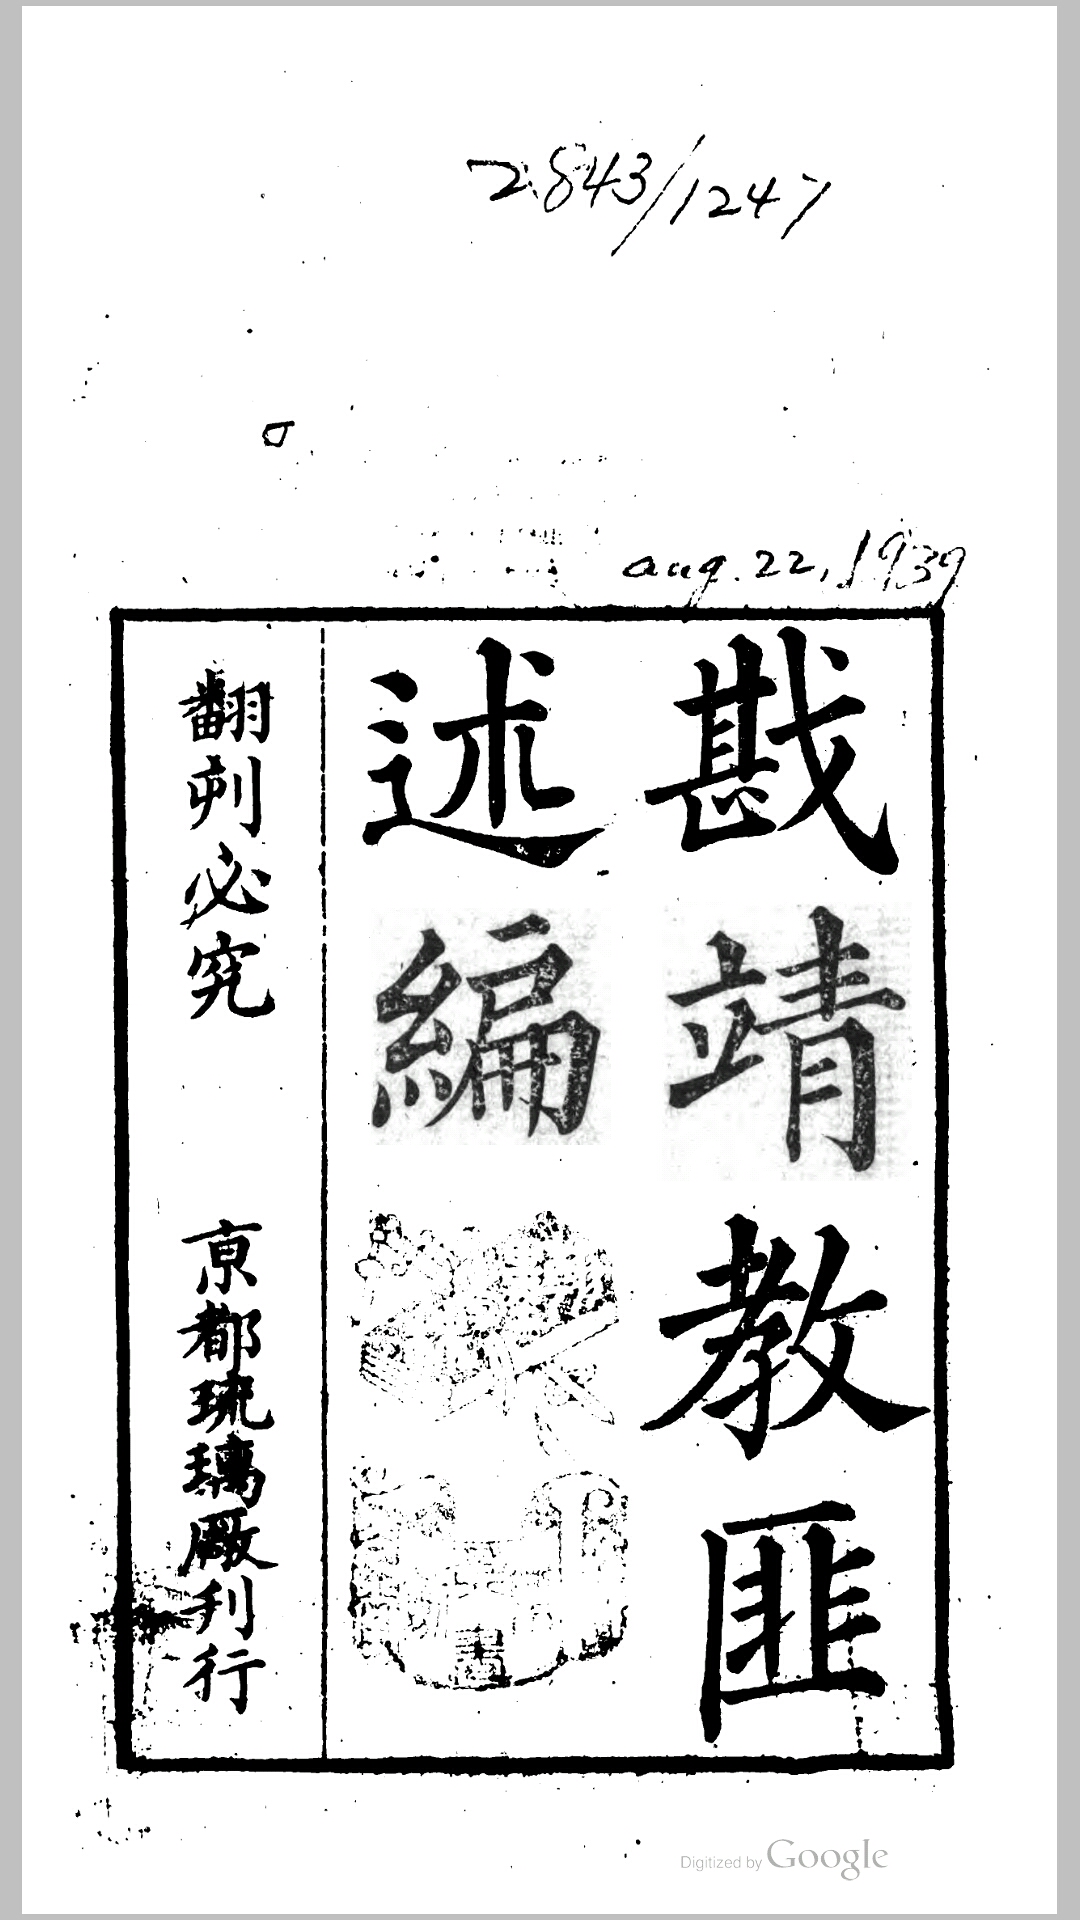 2843/1247
Aug. 22, 1939
戡靖教匪
述編
翻刋必究
京都琉璃厰刋行
Digitized by Google